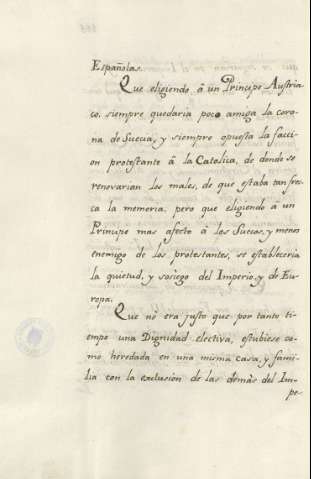 Españolas.
Que eligiendo â un Principe Austria
co, siempre quedaria poco amiga la coro
na de Suecia, y siempre opuesta la facci
on protestante â la Catolica, de donde se
renovarian los males, de que estaba tan fres
ca la memoria, pero que eligiendo â un
Principe mas afecto â los Suecos, y menos
enemigo de los protestantes, se estableceria
la quietud, y sosiego del Imperio, y de Eu-
ropa.
Que nò era justo que por tanto ti-
empo una Dignidad electiva, estubiese co-
mo heredada en una misma casa, y fami-
lia con la exclusion de las demàs del Im-
pe-